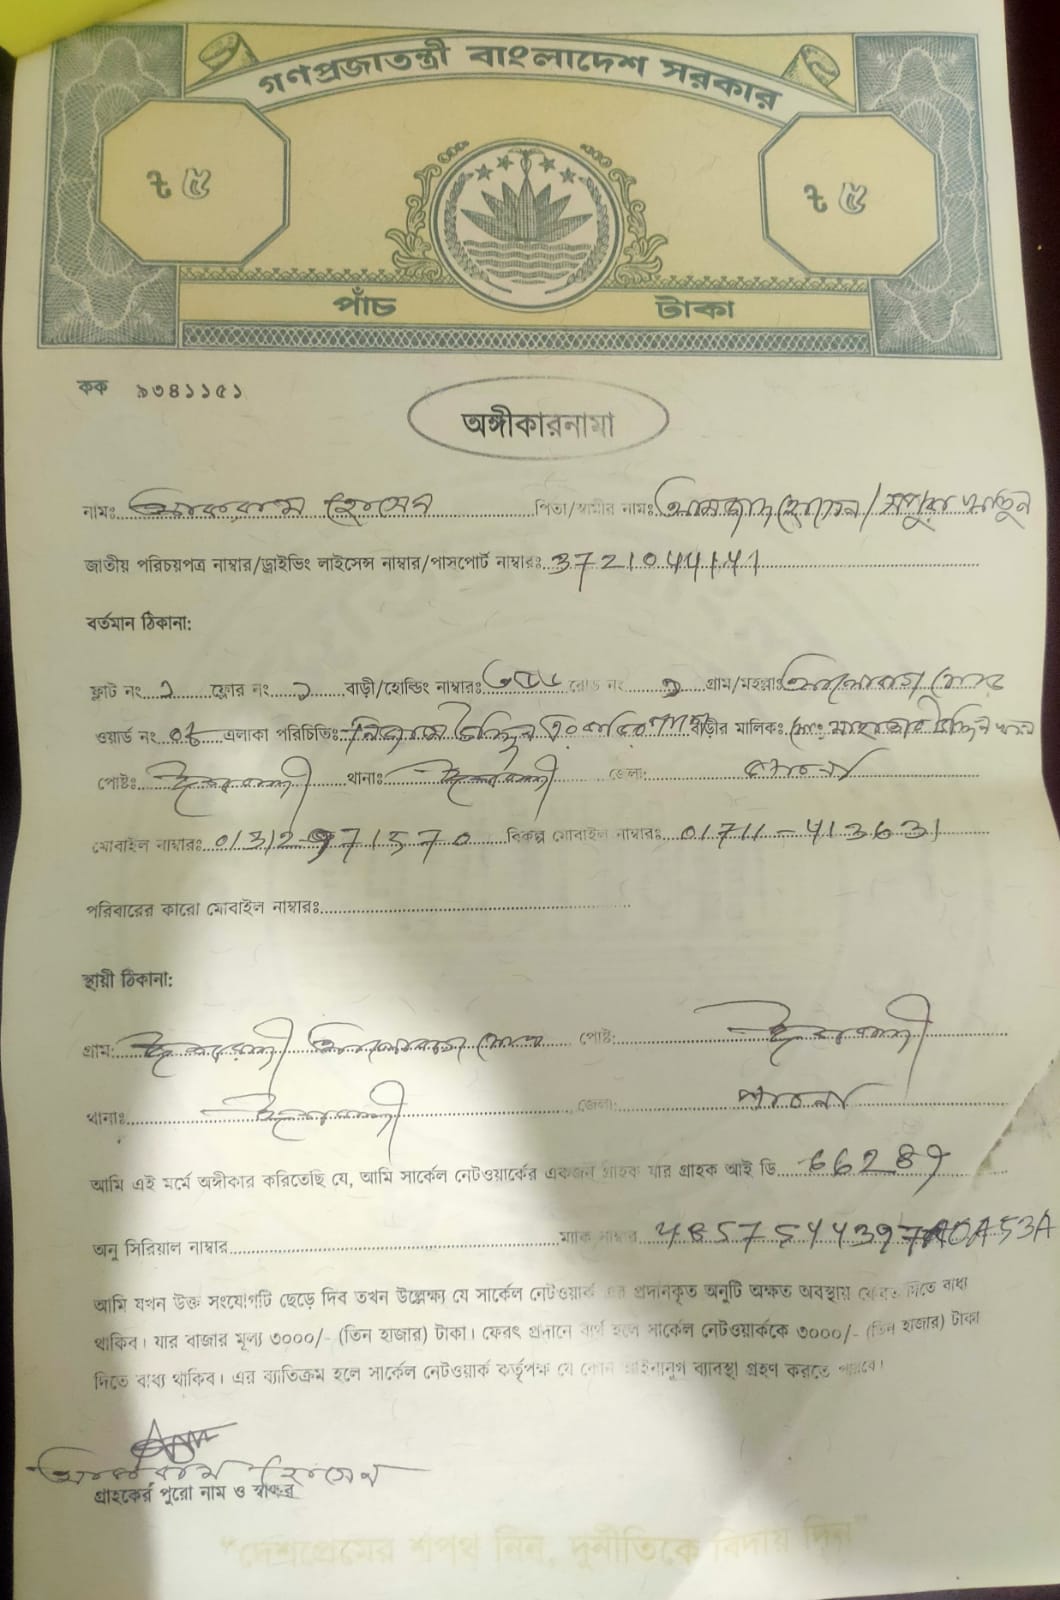 গণপ্রজাতন্ত্রী বাংলাদেশ সরকার
৳ ৫ ৳ ৫
পাঁচ টাকা
কক ৯৩৪১১৫১
অঙ্গীকারনামা
নামঃ আকরাম হোসেন পিতা/স্বামীর নামঃ আমজাদ হোসেন / খাতুন
জাতীয় পরিচয়পত্র নাম্বার/ড্রাইভিং লাইসেন্স নাম্বার/পাসপোর্ট নাম্বারঃ 3721044141
বর্তমান ঠিকানা:
ফ্লাট নং ফ্লোর নং ১ বাড়ী/হোল্ডিং নাম্বারঃ রোড নং গ্রাম/মহল্লাঃ
ওয়ার্ড নং এলাকা পরিচিতিঃ বাড়ীর মালিকঃ
পোষ্টঃ ঈশ্বরদী থানাঃ ঈশ্বরদী জেলা: পাবনা
মোবাইল নাম্বারঃ বিকল্প মোবাইল নাম্বারঃ 01711-413631
পরিবারের কারো মোবাইল নাম্বারঃ
স্থায়ী ঠিকানা:
গ্রাম: ঈশ্বরদী পোষ্ট: ঈশ্বরদী
থানাঃ ঈশ্বরদী জেলা: পাবনা
আমি এই মর্মে অঙ্গীকার করিতেছি যে, আমি সার্কেল নেটওয়ার্কের একজন গ্রাহক যার গ্রাহক আই ডি
অনু সিরিয়াল নাম্বার ম্যাক নাম্বার
আমি যখন উক্ত সংযোগটি ছেড়ে দিব তখন উল্লেক্ষ্য যে সার্কেল নেটওয়ার্ক এর প্রদানকৃত অনুটি অক্ষত অবস্থায় ফেরত দিতে বাধ্য
থাকিব। যার বাজার মূল্য ৩০০০/- (তিন হাজার) টাকা। ফেরৎ প্রদানে ব্যর্থ হলে সার্কেল নেটওয়ার্ককে ৩০০০/- (তিন হাজার) টাকা
দিতে বাধ্য থাকিব। এর ব্যাতিক্রম হলে সার্কেল নেটওয়ার্ক কর্তৃপক্ষ যে কোন আইনানুগ ব্যাবস্থা গ্রহণ করতে পারবে।
আকরাম হোসেন
গ্রাহকের পুরো নাম ও স্বাক্ষর
"দেশপ্রেমের শপথ নিন, দুর্নীতিকে বিদায় দিন"